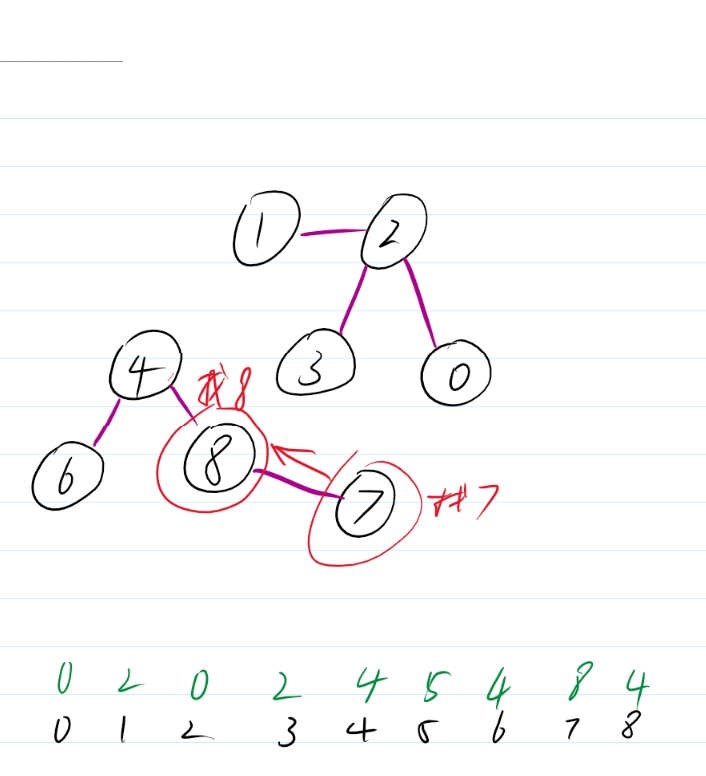 1 2
4 #8 3 0
6 8 7 #7
0 2 0 2 4 5 4 8 4
0 1 2 3 4 5 6 7 8